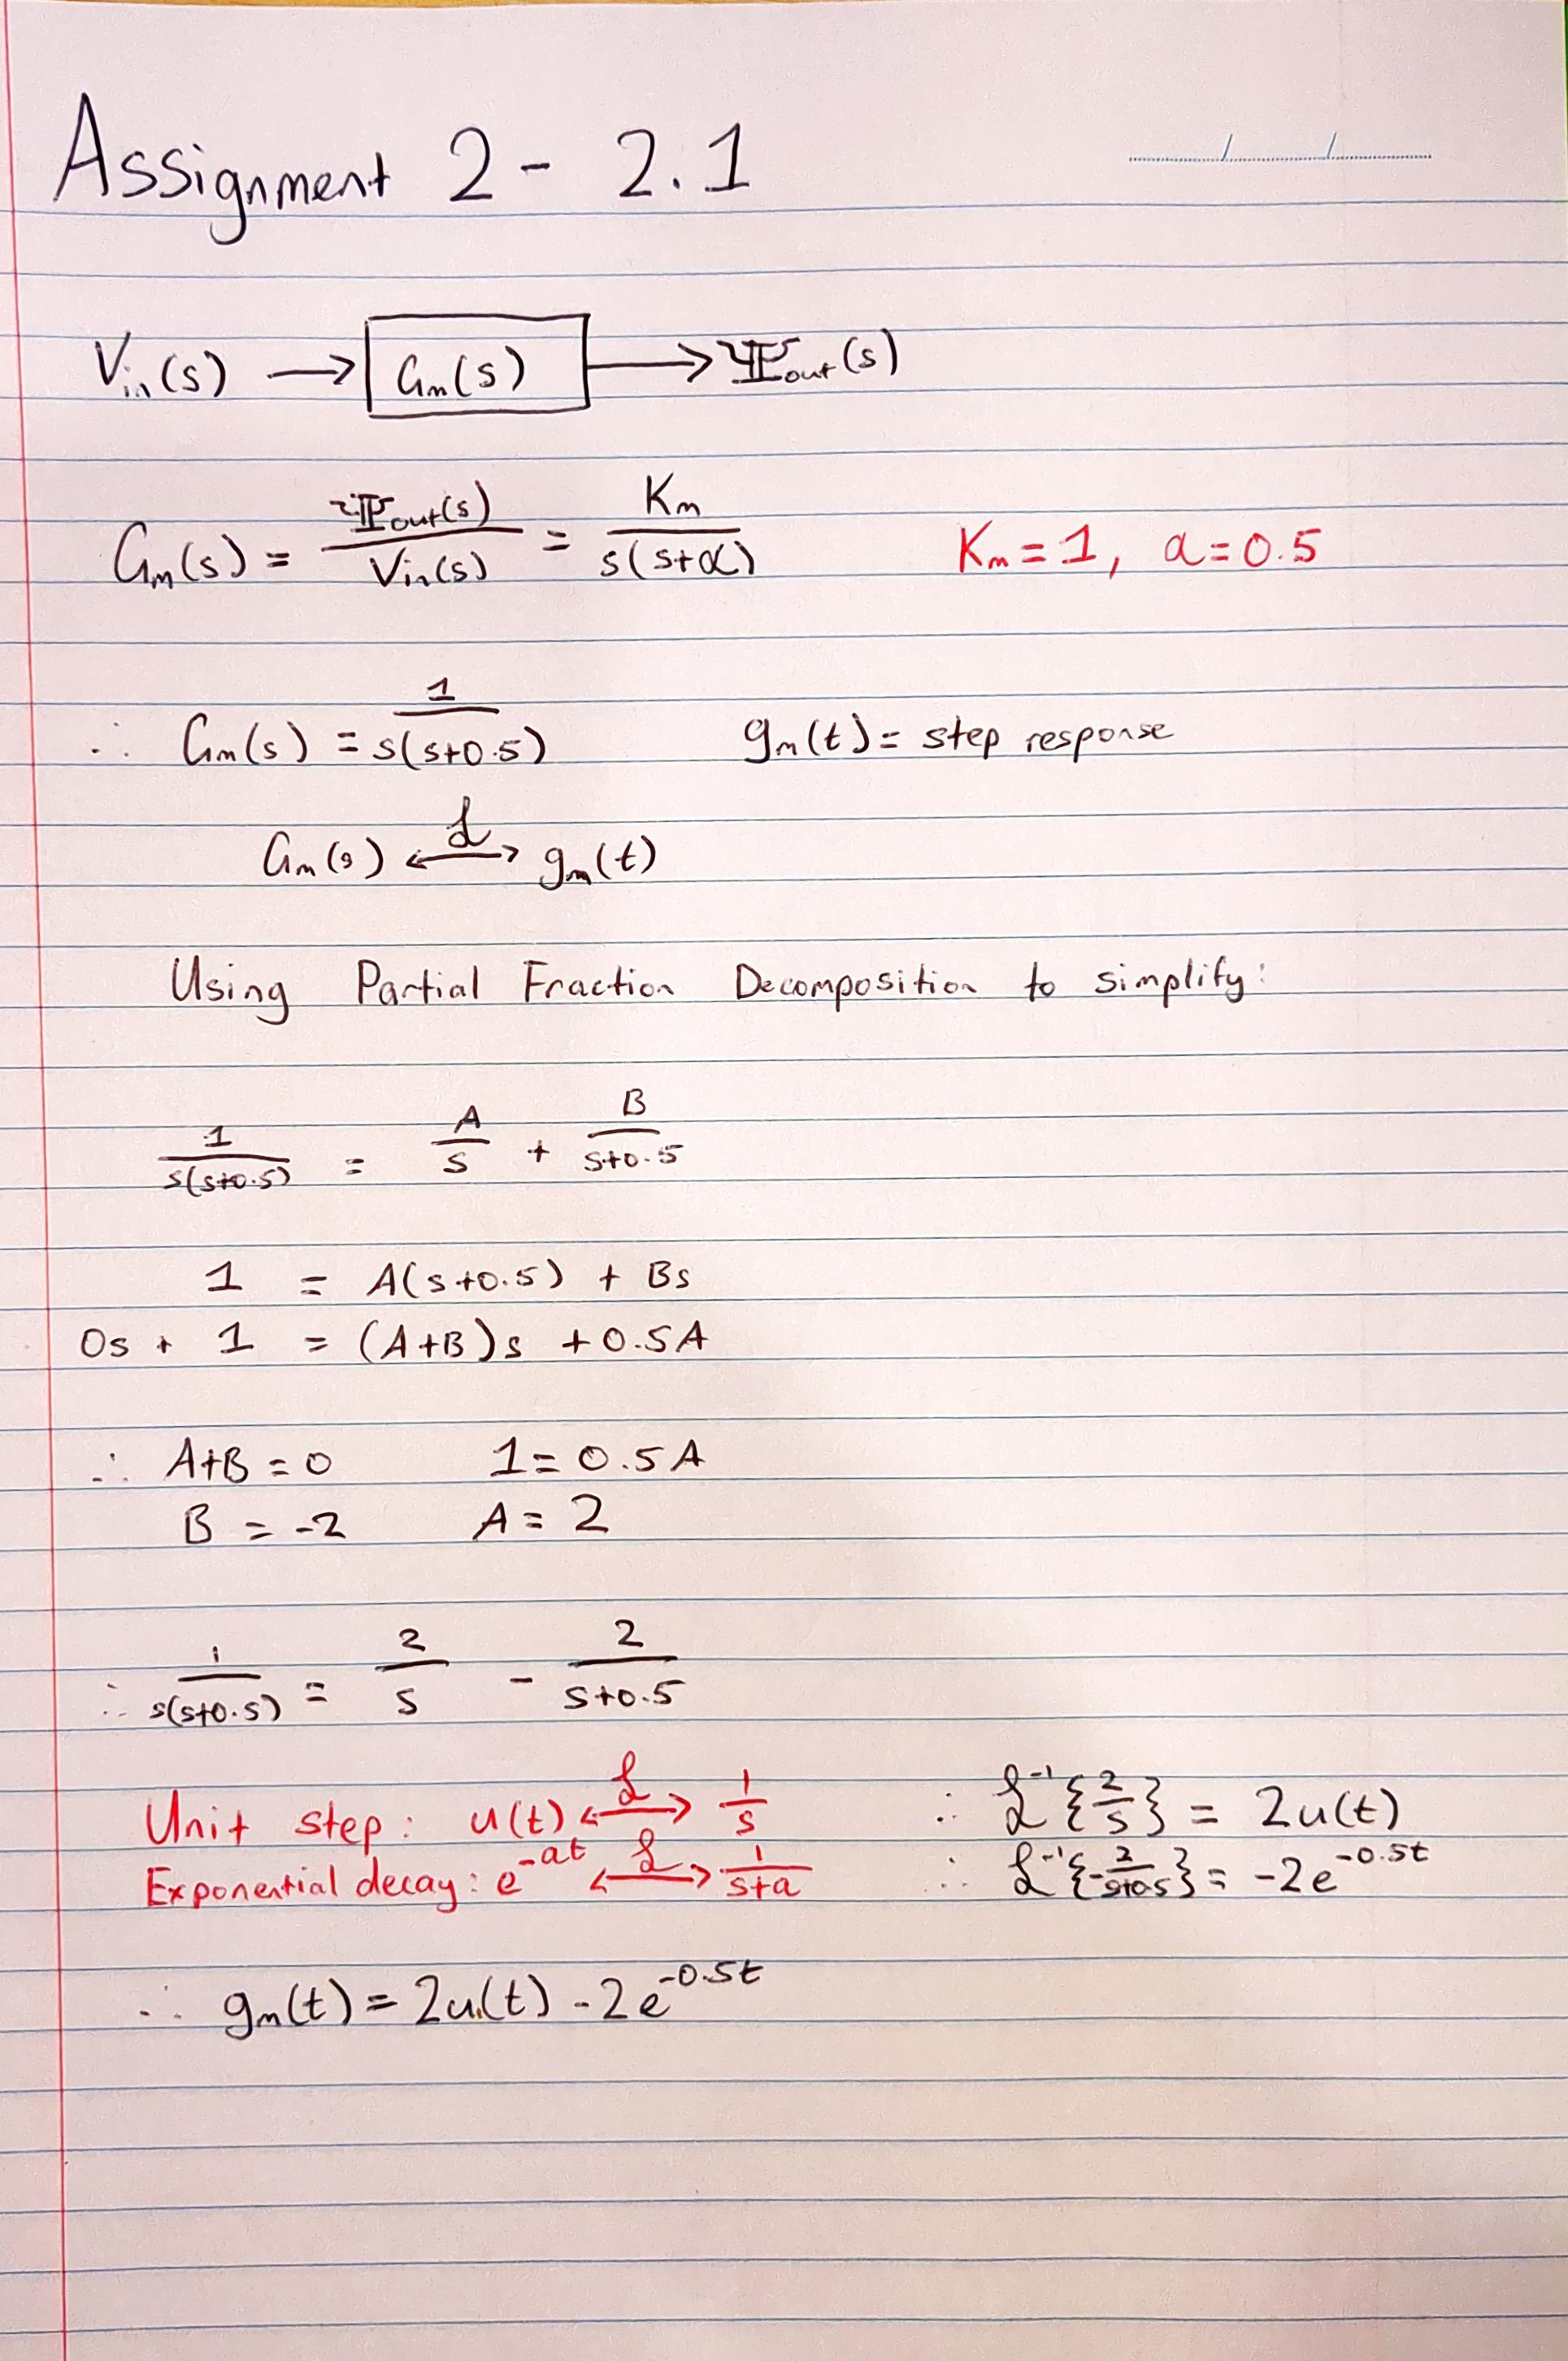 Assignment 2 - 2.1
V_in(s) → G_m(s) → Ψ_out(s)
G_m(s) = Ψ_out(s) / V_in(s) = K_m / s(s+α)    K_m = 1, α = 0.5
∴ G_m(s) = 1 / s(s+0.5)    g_m(t) = step response
G_m(s) ⟷^ℒ g_m(t)
Using Partial Fraction Decomposition to simplify:
1 / s(s+0.5) = A/s + B/(s+0.5)
1 = A(s+0.5) + Bs
0s + 1 = (A+B)s + 0.5A
∴ A+B = 0    1 = 0.5A
B = -2    A = 2
∴ 1 / s(s+0.5) = 2/s - 2/(s+0.5)
Unit step: u(t) ⟷^ℒ 1/s    ∴ ℒ⁻¹{2/s} = 2u(t)
Exponential decay: e^(-at) ⟷^ℒ 1/(s+a)    ∴ ℒ⁻¹{-2/(s+0.5)} = -2e^(-0.5t)
∴ g_m(t) = 2u(t) - 2e^(-0.5t)